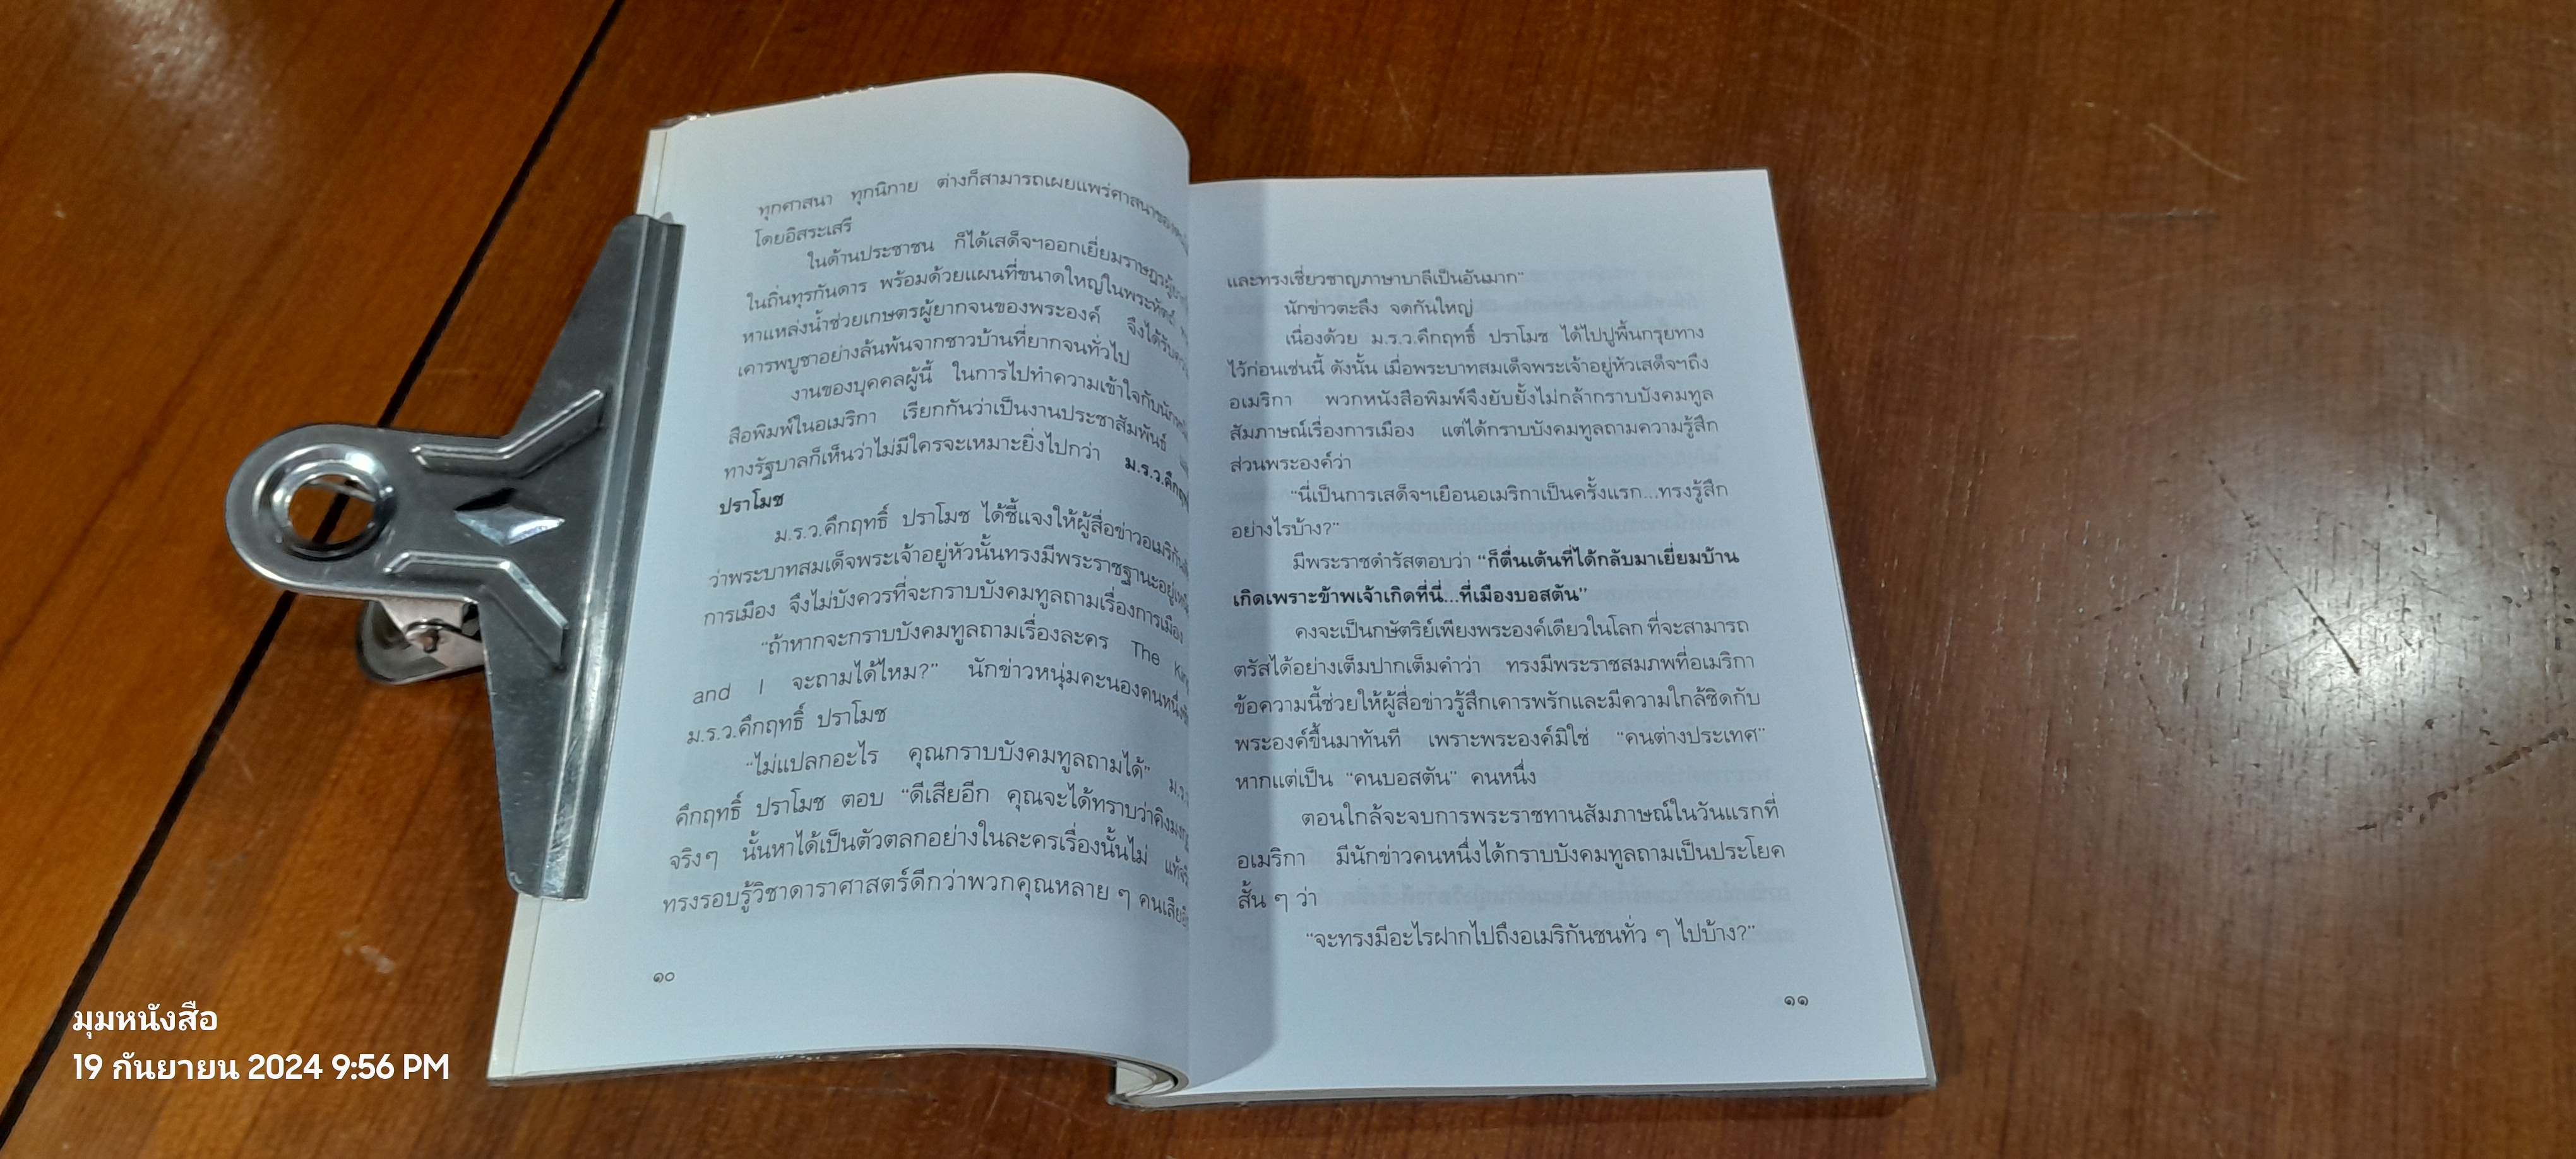 ทุกศาสนา ทุกนิกาย ต่างก็สามารถเผยแพร่ศาสนาของ
โดยอิสระเสรี
ในด้านประชาชน ก็ได้เสด็จฯออกเยี่ยมราษฎร
ในถิ่นทุรกันดาร พร้อมด้วยแผนที่ขนาดใหญ่ในพระหัตถ์
หาแหล่งน้ำช่วยเกษตรผู้ยากจนของพระองค์ จึงได้รับ
เคารพบูชาอย่างล้นพ้นจากชาวบ้านที่ยากจนทั่วไป
งานของบุคคลผู้นี้ ในการไปทำความเข้าใจกับ
สือพิมพ์ในอเมริกา เรียกกันว่าเป็นงานประชาสัมพันธ์
ทางรัฐบาลก็เห็นว่าไม่มีใครจะเหมาะยิ่งไปกว่า ม.ร.ว.คึกฤทธิ์
ปราโมช
ม.ร.ว.คึกฤทธิ์ ปราโมช ได้ชี้แจงให้ผู้สื่อข่าวอเมริกัน
ว่าพระบาทสมเด็จพระเจ้าอยู่หัวนั้นทรงมีพระราชฐานะอยู่เหนือ
การเมือง จึงไม่บังควรที่จะกราบบังคมทูลถามเรื่องการเมือง
“ถ้าหากจะกราบบังคมทูลถามเรื่องละคร The King
and I จะถามได้ไหม?” นักข่าวหนุ่มคะนองคนหนึ่ง
ม.ร.ว.คึกฤทธิ์ ปราโมช
“ไม่แปลกอะไร คุณกราบบังคมทูลถามได้” ม.ร.ว.
คึกฤทธิ์ ปราโมช ตอบ “ดีเสียอีก คุณจะได้ทราบว่าคิงมงกุฎ
จริงๆ นั้นหาได้เป็นตัวตลกอย่างในละครเรื่องนั้นไม่
ทรงรอบรู้วิชาดาราศาสตร์ดีกว่าพวกคุณหลาย ๆ คนเสียอีก
๑๐
และทรงเชี่ยวชาญภาษาบาลีเป็นอันมาก”
นักข่าวตะลึง จดกันใหญ่
เนื่องด้วย ม.ร.ว.คึกฤทธิ์ ปราโมช ได้ไปปูพื้นกรุยทาง
ไว้ก่อนเช่นนี้ ดังนั้น เมื่อพระบาทสมเด็จพระเจ้าอยู่หัวเสด็จฯถึง
อเมริกา พวกหนังสือพิมพ์จึงยับยั้งไม่กล้ากราบบังคมทูล
สัมภาษณ์เรื่องการเมือง แต่ได้กราบบังคมทูลถามความรู้สึก
ส่วนพระองค์ว่า
“นี่เป็นการเสด็จฯเยือนอเมริกาเป็นครั้งแรก...ทรงรู้สึก
อย่างไรบ้าง?”
มีพระราชดำรัสตอบว่า “ก็ตื่นเต้นที่ได้กลับมาเยี่ยมบ้าน
เกิดเพราะข้าพเจ้าเกิดที่นี่...ที่เมืองบอสตัน”
คงจะเป็นกษัตริย์เพียงพระองค์เดียวในโลก ที่จะสามารถ
ตรัสได้อย่างเต็มปากเต็มคำว่า ทรงมีพระราชสมภพที่อเมริกา
ข้อความนี้ช่วยให้ผู้สื่อข่าวรู้สึกเคารพรักและมีความใกล้ชิดกับ
พระองค์ขึ้นมาทันที เพราะพระองค์มิใช่ “คนต่างประเทศ”
หากแต่เป็น “คนบอสตัน” คนหนึ่ง
ตอนใกล้จะจบการพระราชทานสัมภาษณ์ในวันแรกที่
อเมริกา มีนักข่าวคนหนึ่งได้กราบบังคมทูลถามเป็นประโยค
สั้น ๆ ว่า
“จะทรงมีอะไรฝากไปถึงอเมริกันชนทั่ว ๆ ไปบ้าง?”
๑๑
มุมหนังสือ
19 กันยายน 2024 9:56 PM